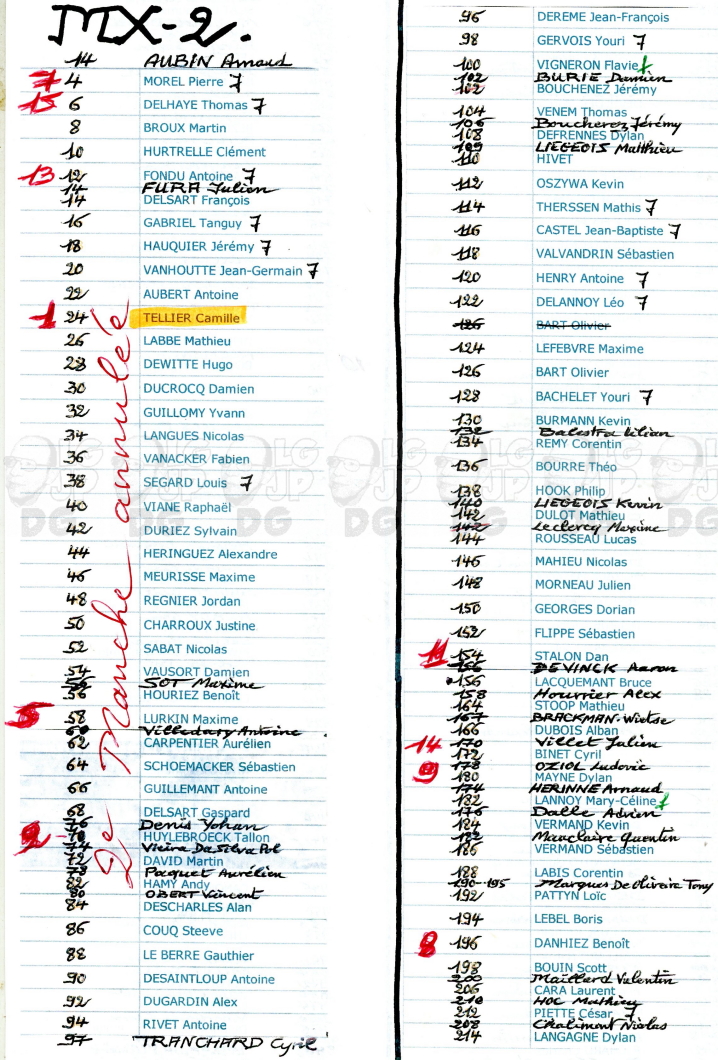 MX-2.
14 AUBIN Arnaud
7 4 MOREL Pierre 7
15 6 DELHAYE Thomas 7
8 BROUX Martin
10 HURTRELLE Clément
13 12 FONDU Antoine 7
14 FURA Julien
14 DELSART François
16 GABRIEL Tanguy 7
18 HAUQUIER Jérémy 7
20 VANHOUTTE Jean-Germain 7
22 AUBERT Antoine
1 24 TELLIER Camille
26 LABBE Mathieu
28 DEWITTE Hugo
30 DUCROCQ Damien
32 GUILLOMY Yvann
34 LANGUES Nicolas
36 VANACKER Fabien
38 SEGARD Louis 7
40 VIANE Raphaël
42 DURIEZ Sylvain
44 HERINGUEZ Alexandre
46 MEURISSE Maxime
48 REGNIER Jordan
50 CHARROUX Justine
52 SABAT Nicolas
54 VAUSORT Damien
56 SOT Maxime
56 HOURIEZ Benoît
5 58 LURKIN Maxime
60 Villedary Antoine
62 CARPENTIER Aurélien
64 SCHOEMACKER Sébastien
66 GUILLEMANT Antoine
68 DELSART Gaspard
76 Denis Yohan
2 - 70 HUYLEBROECK Tallon
74 Vieira Da Silva Pol
72 DAVID Martin
78 Paquet Aurélien
82 HAMY Andy
80 OBERT Vincent
84 DESCHARLES Alan
86 COUQ Steeve
88 LE BERRE Gauthier
90 DESAINTLOUP Antoine
92 DUGARDIN Alex
94 RIVET Antoine
97 TRANCHARD Cyril
2e Manche annulée
96 DEREME Jean-François
98 GERVOIS Youri 7
100 VIGNERON Flavie f
102 BURIE Damien
102 BOUCHENEZ Jérémy
104 VENEM Thomas
106 Boucherez Jérémy
108 DEFRENNES Dylan
109 LIEGEOIS Matthieu
110 HIVET
112 OSZYWA Kevin
114 THERSSEN Mathis 7
116 CASTEL Jean-Baptiste 7
118 VALVANDRIN Sébastien
120 HENRY Antoine 7
122 DELANNOY Léo 7
126 BART Olivier
124 LEFEBVRE Maxime
126 BART Olivier
128 BACHELET Youri 7
130 BURMANN Kevin
132 Balestra Kilian
134 REMY Corentin
136 BOURRE Théo
138 HOOK Philip
140 LIEGEOIS Kevin
142 DULOT Mathieu
142 Leclercq Maxime
144 ROUSSEAU Lucas
146 MAHIEU Nicolas
148 MORNEAU Julien
150 GEORGES Dorian
152 FLIPPE Sébastien
11 154 STALON Dan
156 DEVINCK Aaron
156 LACQUEMANT Bruce
158 Hourrier Alex
164 STOOP Mathieu
167 BRACKMAN Wietse
166 DUBOIS Alban
14 170 Villet Julien
172 BINET Cyril
9 178 OZIOL Ludovic
180 MAYNE Dylan
174 HERINNE Arnaud
182 LANNOY Mary-Céline f
176 Dalle Adrien
184 VERMAND Kevin
182 Mauclaire Quentin
186 VERMAND Sébastien
188 LABIS Corentin
190-195 Marques De Oliveira Tony
192 PATTYN Loïc
194 LEBEL Boris
8 196 DANHIEZ Benoît
198 BOUIN Scott
200 Maillard Valentin
206 CARA Laurent
210 HOC Mathieu
212 PIETTE César 7
208 Chalimont Nicolas
214 LANGAGNE Dylan